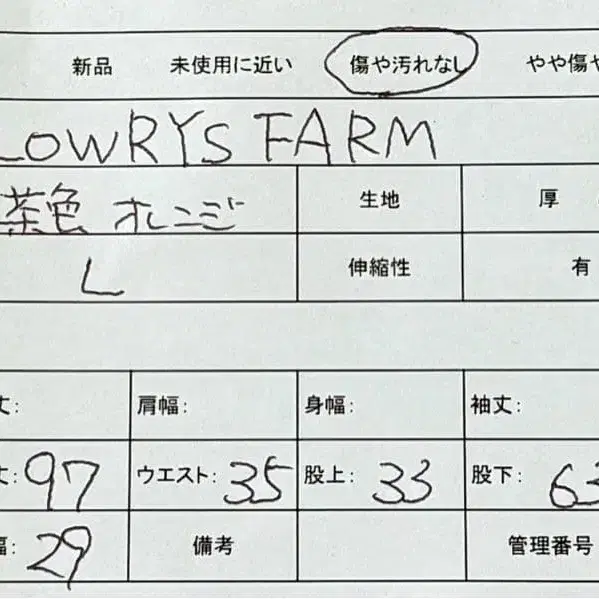 新品 未使用に近い 傷や汚れなし やや傷や
LOWRYS FARM
茶色 オレンジ 生地 厚
L 伸縮性 有
丈: 肩幅: 身幅: 袖丈:
丈: 97 ウエスト: 35 股上: 33 股下: 63
幅: 29 備考 管理番号